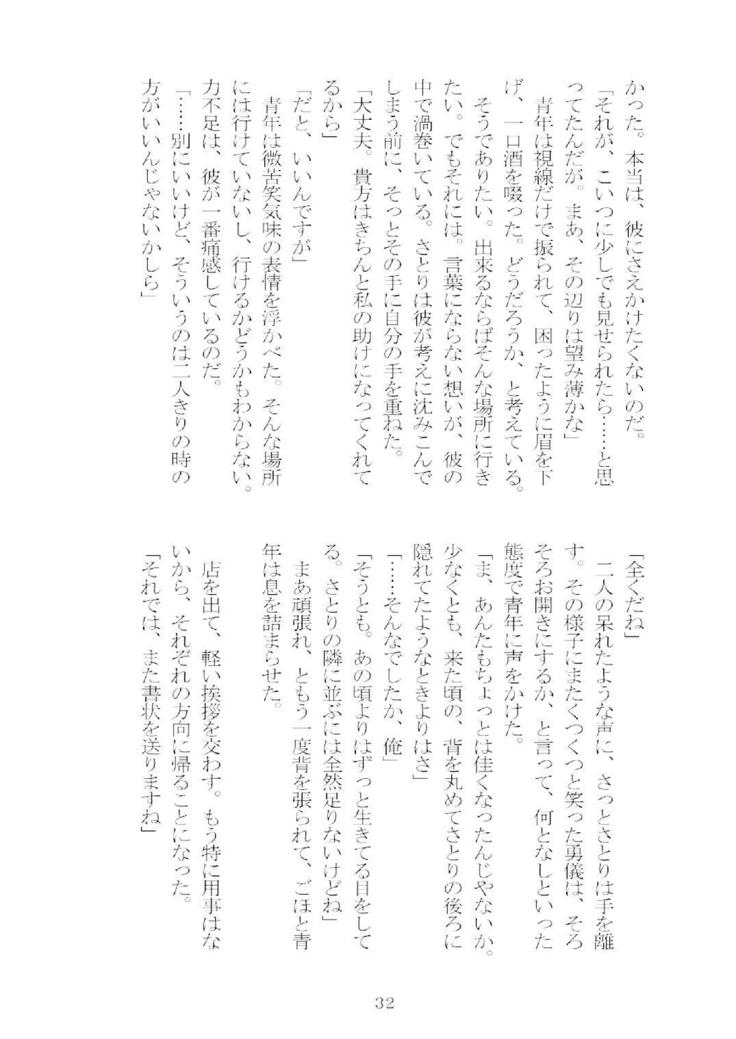 かった。本当は、彼にさえかけたくないのだ。
「それが、こいつに少しでも見せられたら……と思
ってたんだが。まあ、その辺りは望み薄かな」
　青年は視線だけで振られて、困ったように眉を下
げ、一口酒を啜った。どうだろうか、と考えている。
　そうでありたい。出来るならばそんな場所に行き
たい。でもそれには。言葉にならない想いが、彼の
中で渦巻いている。さとりは彼が考えに沈みこんで
しまう前に、そっとその手に自分の手を重ねた。
「大丈夫。貴方はきちんと私の助けになってくれて
るから」
「だと、いいんですが」
　青年は微苦笑気味の表情を浮かべた。そんな場所
には行けていないし、行けるかどうかもわからない。
力不足は、彼が一番痛感しているのだ。
「……別にいいけど、そういうのは二人きりの時の
方がいいんじゃないかしら」
「全くだね」
　二人の呆れたような声に、さっとさとりは手を離
す。その様子にまたくつくつと笑った勇儀は、そろ
そろお開きにするか、と言って、何となしといった
態度で青年に声をかけた。
「ま、あんたもちょっとは佳くなったんじやないか。
少なくとも、来た頃の、背を丸めてさとりの後ろに
隠れてたようなときよりはさ」
「……そんなでしたか、俺」
「そうとも。あの頃よりはずっと生きてる目をして
る。さとりの隣に並ぶには全然足りないけどね」
　まあ頑張れ、ともう一度背を張られて、ごほと青
年は息を詰まらせた。
　店を出て、軽い挨拶を交わす。もう特に用事はな
いから、それぞれの方向に帰ることになった。
「それでは、また書状を送りますね」
32